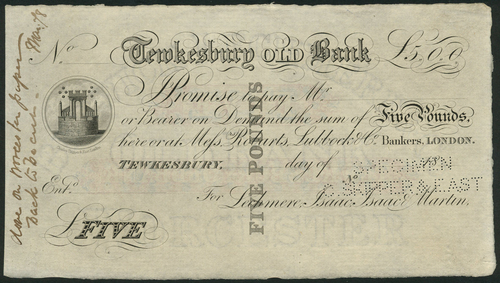 Tewkesbury OLD Bank
No
£5,0,0
I Promise to pay Mr.
or Bearer on Demand the sum of Five Pounds,
here or at Messrs. Robarts, Lubbock & Co. Bankers, LONDON.
TEWKESBURY, day of 18
SPECIMEN
C. SKIPPER & EAST
Entd.
For Lechmere, Isaac, Isaac & Martin.
£ FIVE
FIVE POUNDS
done on Worcester paper
Back to be cut